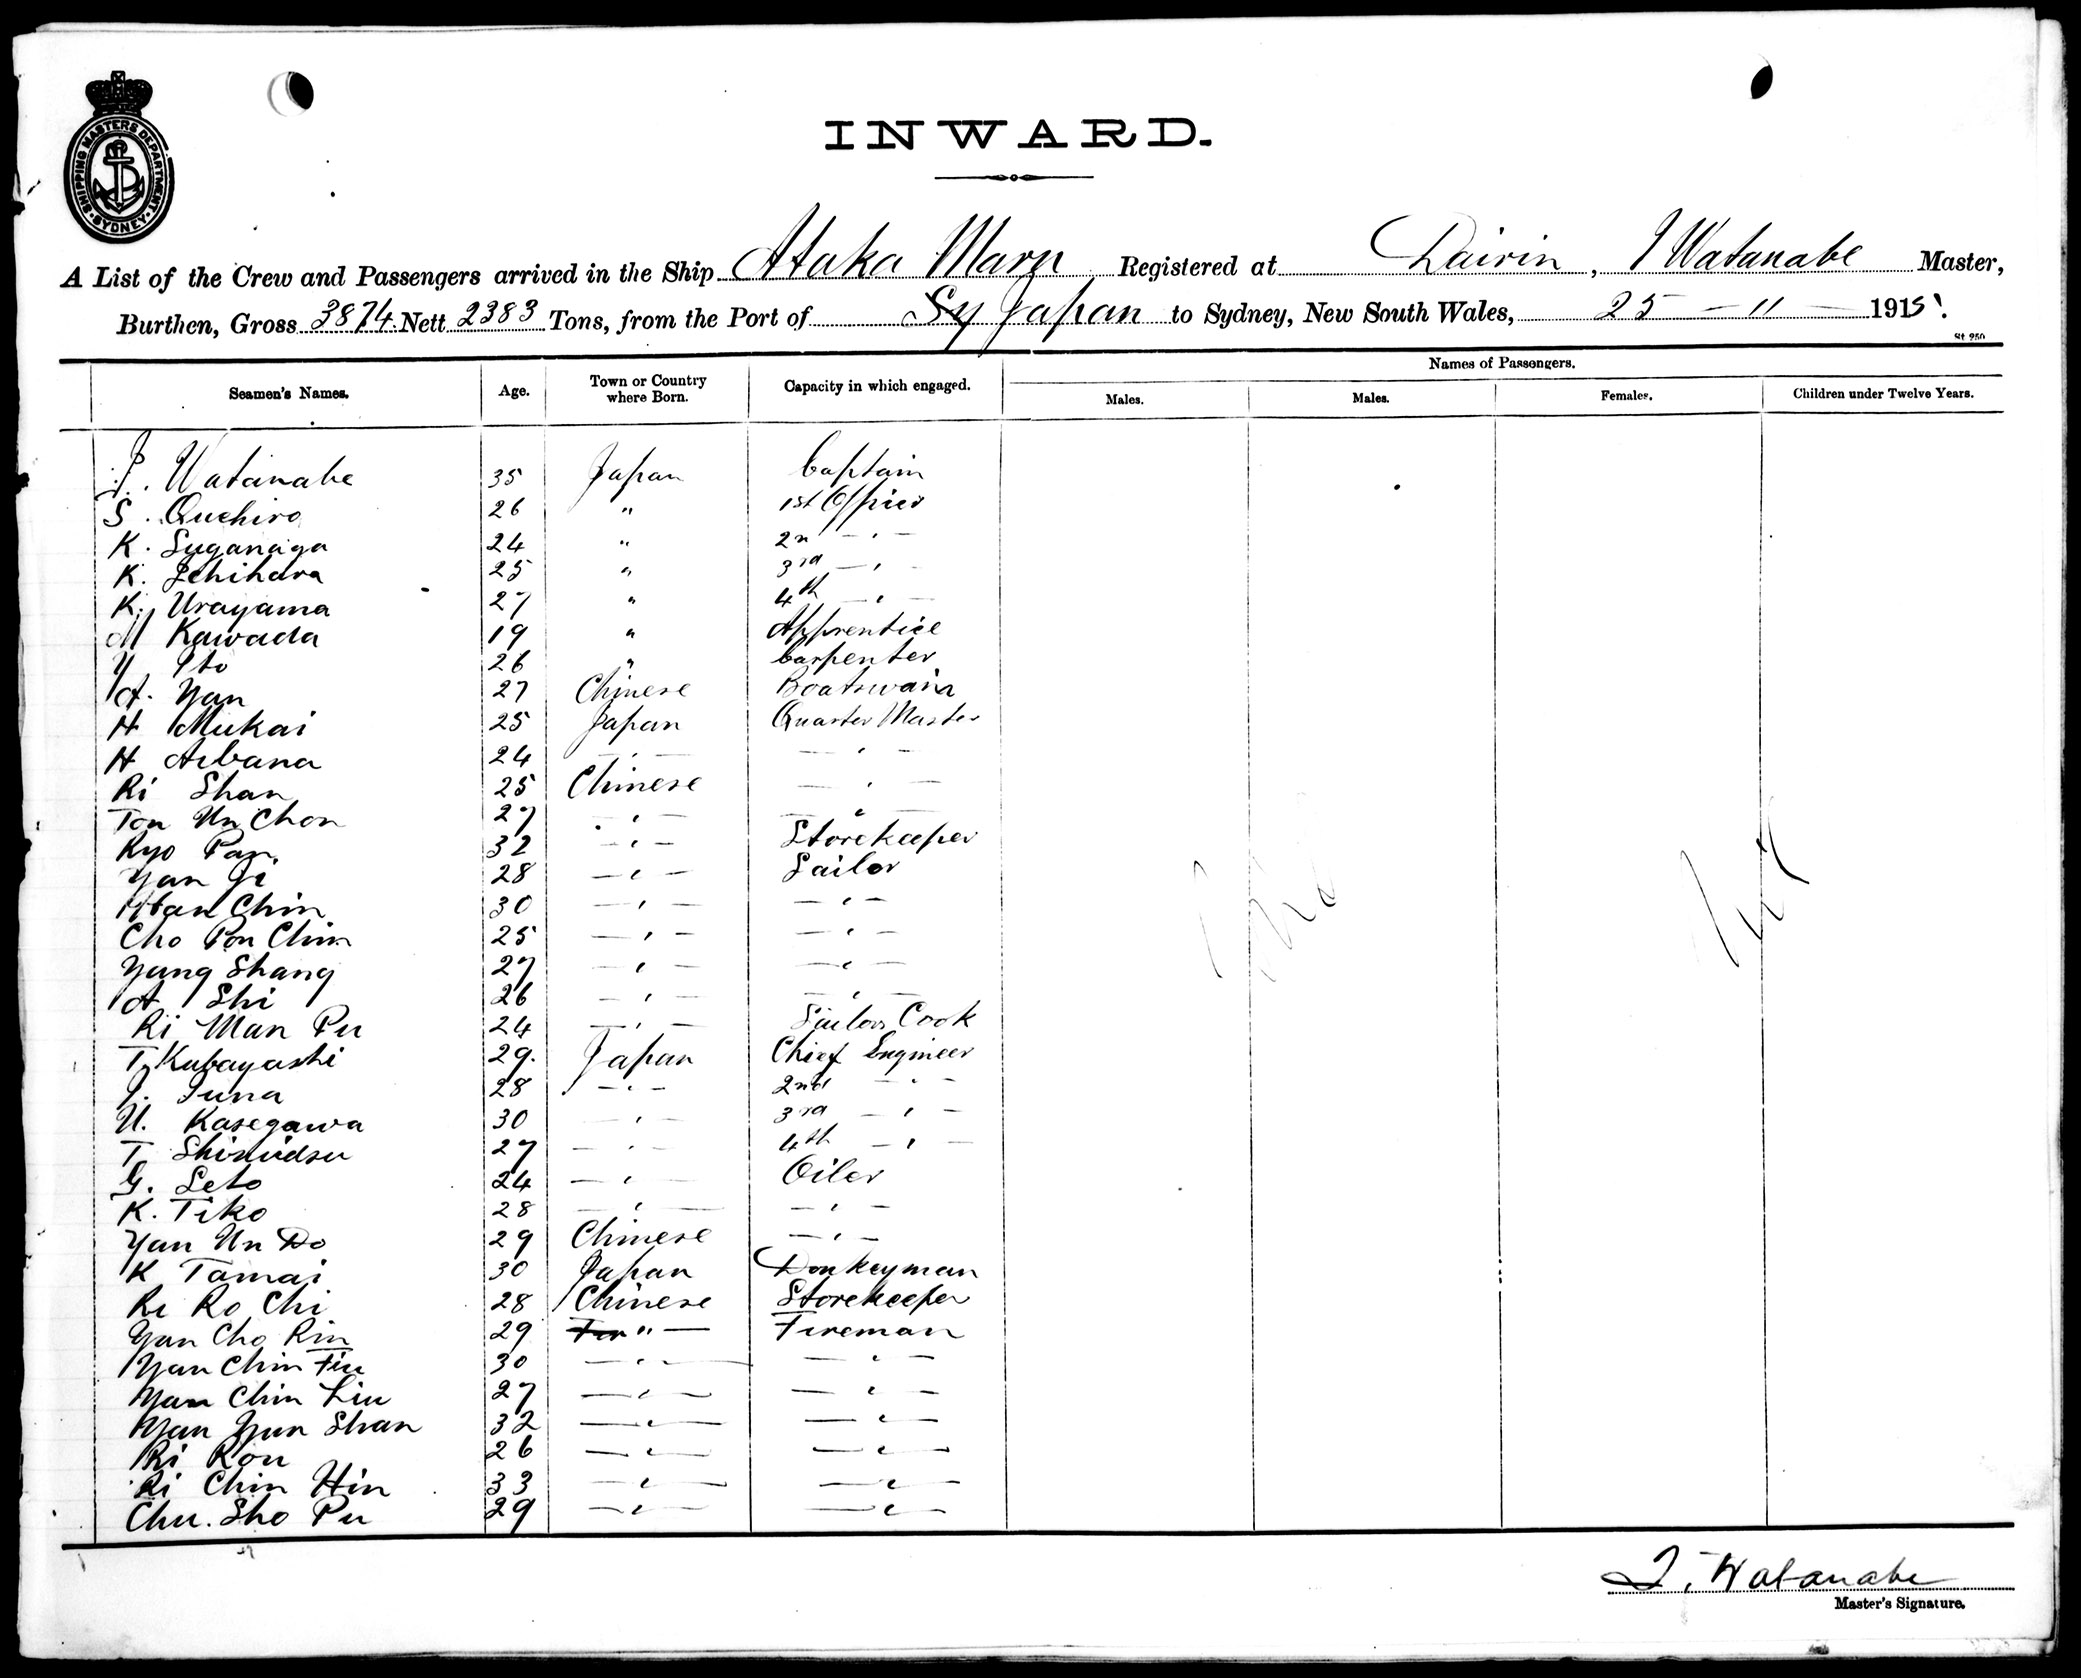 SHIPPING MASTERS DEPARTMENT
SYDNEY
INWARD.
A List of the Crew and Passengers arrived in the Ship Ataka Maru Registered at Dairin, I Watanabe Master,
Burthen, Gross 3874 Nett 2383 Tons, from the Port of Sy Japan to Sydney, New South Wales, 25 - 11 - 1915.
St 250
Names of Passengers.
Seamen's Names. Age. Town or Country where Born. Capacity in which engaged. Males. Males. Females. Children under Twelve Years.
I. Watanabe 35 Japan Captain
S. Ouchiro 26 " 1st Officer
K. Suganaga 24 " 2n - " -
K. Ichihara 25 " 3rd - " -
K. Urayama 27 " 4th - " -
M Kawada 19 " Apprentice
Y Ito 26 " Carpenter
A. Yan 27 Chinese Boatswain
H Mukai 25 Japan Quarter Master
H Aibana 24 - " - - " -
Ri Shan 25 Chinese - " -
Ton Un Chon 27 - " - - " -
Kyo Pan. 32 - " - Storekeeper
Yan Ji 28 - " - Sailor
Han Chin 30 - " - - " -
Cho Pon Chin 25 - " - - " -
Yang Shang 27 - " - - " -
A Shi 26 - " - - " -
Ri Man Pu 24 - " - Sailors Cook
T. Kubayashi 29. Japan Chief Engineer
I. Suna 28 - " - 2nd - " -
U. Kasegawa 30 - " - 3rd - " -
T. Shimidsu 27 - " - 4th - " -
G. Seto 24 - " - Oiler
K. Tiko 28 - " - - " -
Yan Un Do 29 Chinese - " -
K Tamai 30 Japan Donkeyman
Ri Ro Chi 28 Chinese Storekeeper
Yan Cho Rin 29 " - Fireman
Yan Chin Fiu 30 - " - - " -
Yan Chin Liu 27 - " - - " -
Yan Yun Shan 32 - " - - " -
Ri Ron 26 - " - - " -
Ri Chin Hin 33 - " - - " -
Chu. Sho Pu 29 - " - - " -
I. Watanabe
Master's Signature.